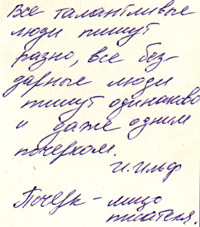 Все талантливые
люди пишут
разно, все без-
дарные люди
пишут одинаково
и даже одним
почерком.
И. Ильф
Почерк – лицо
писателя.